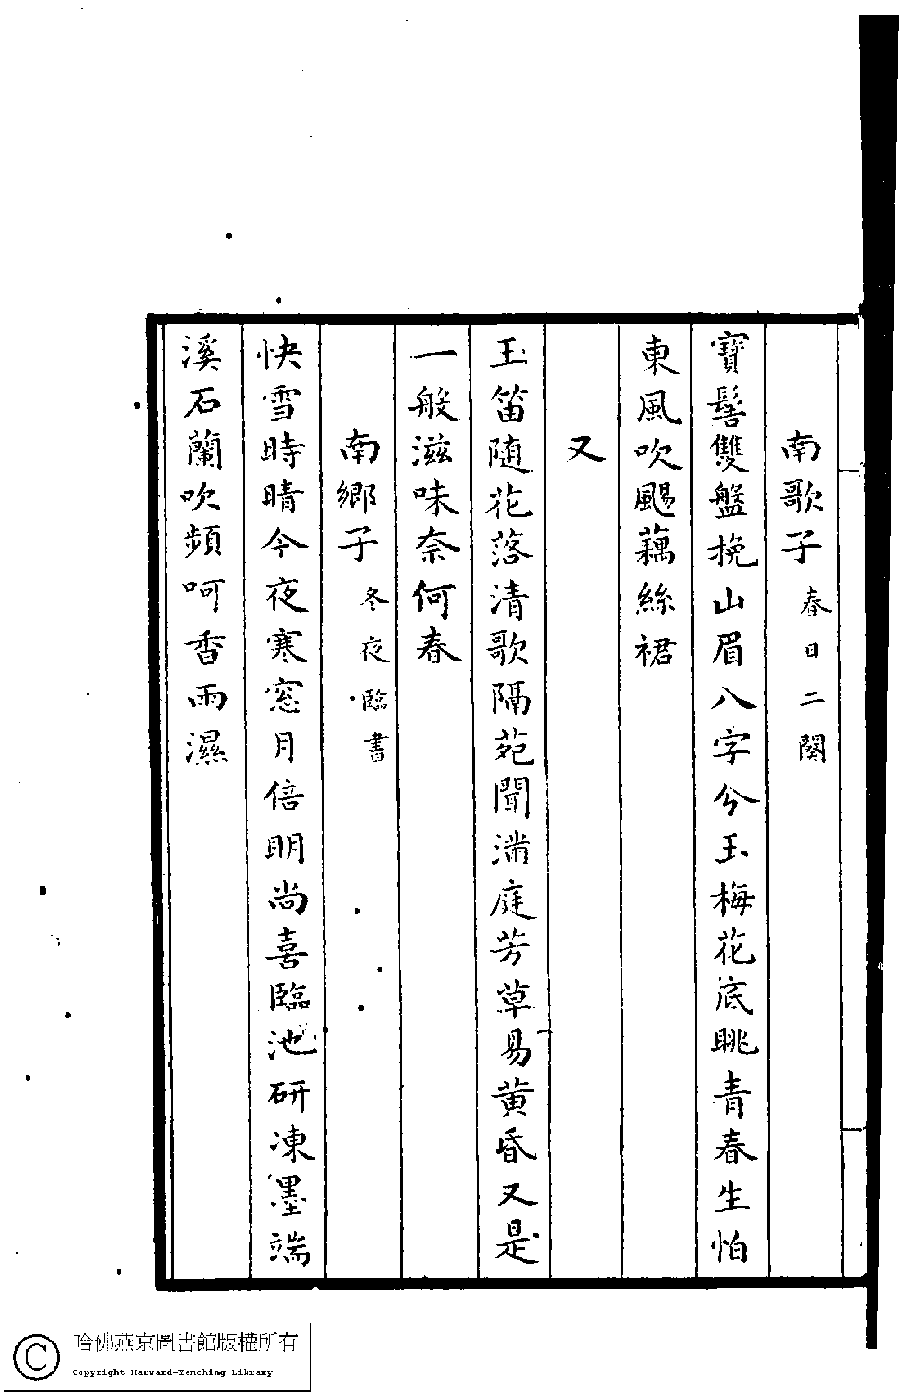 南歌子 春日二闋
寶髻雙盤挽山眉八字兮玉梅花底眺青春生怕
東風吹颺藕絲裙
又
玉笛随花落清歌隔苑聞滿庭芳草易黄昏又是
一般滋味奈何春
南鄉子 冬夜臨書
快雪時晴今夜寒窓月倍明尚喜臨池研凍墨端
溪石蘭吹頻呵香雨濕
哈佛燕京圖書館版權所有
Copyright Harvard-Yenching Library